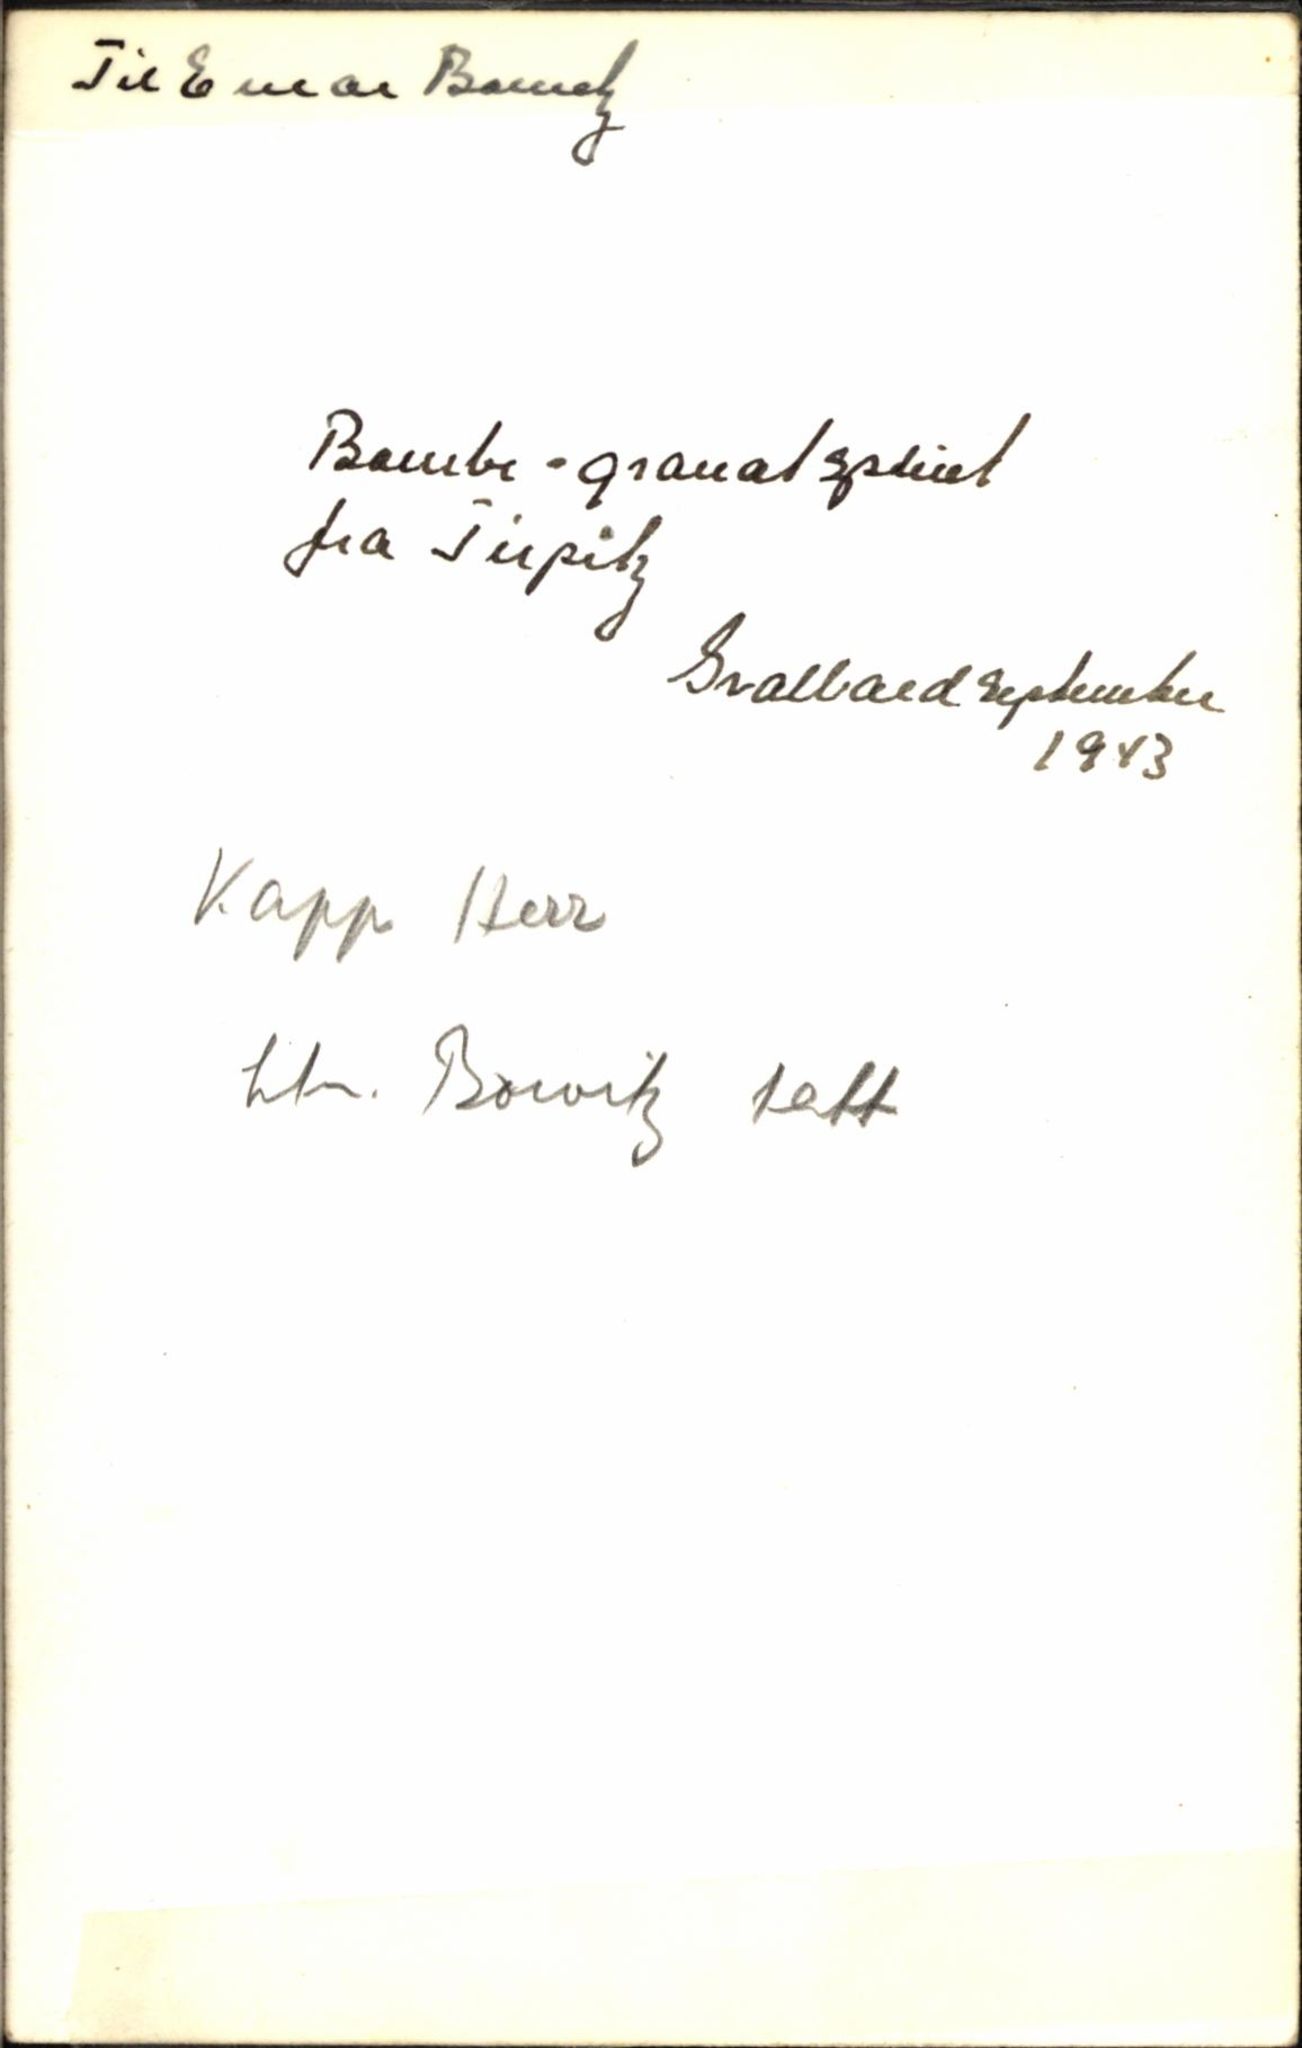 Til Einar Bowitz
Bombe-granatsplint
fra Tirpitz
Svalbard september
1943
Kapp Heer
Ltn. Bowitz tatt